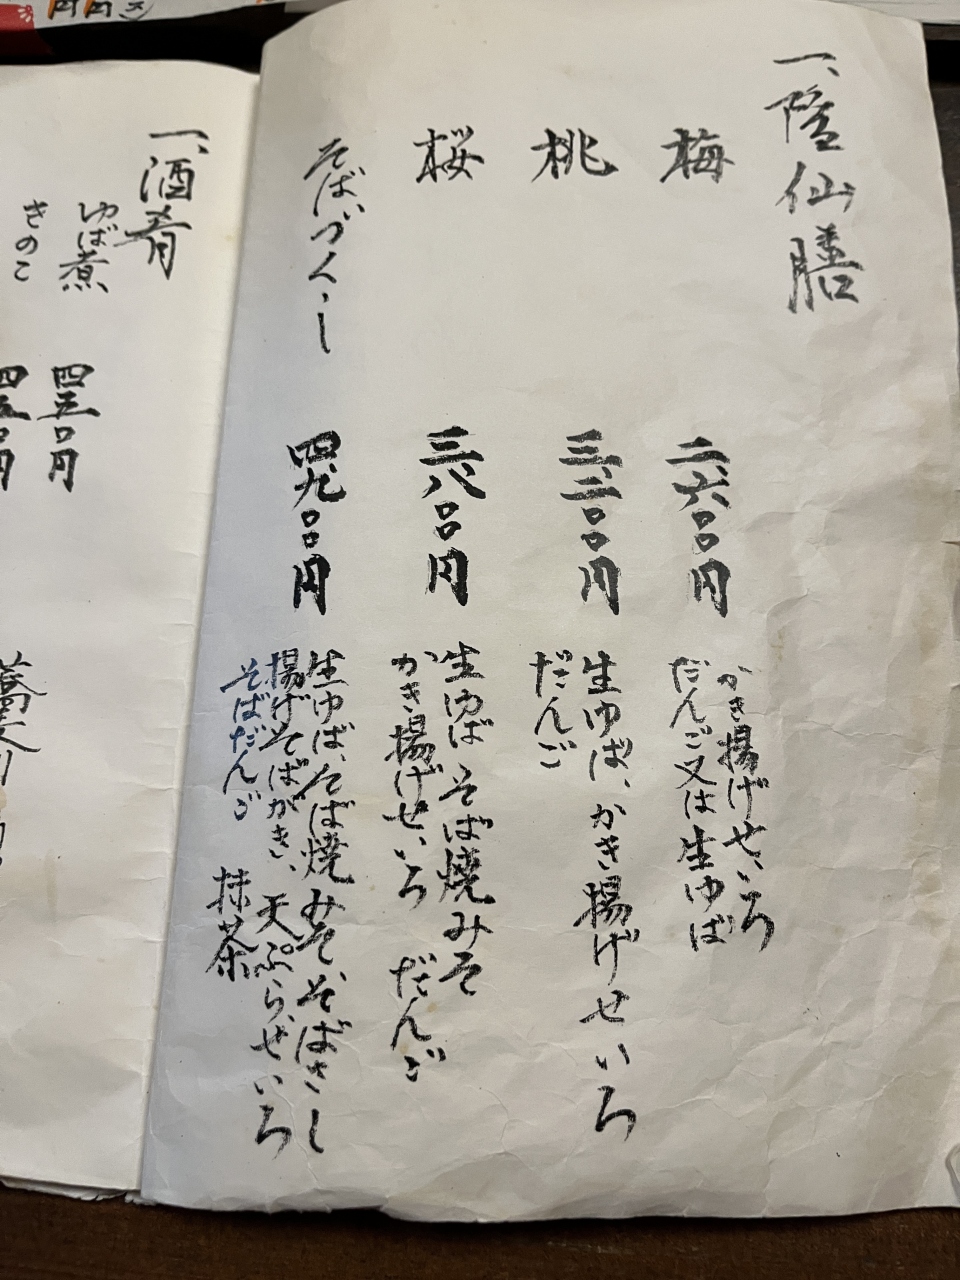 一、隠仙膳
梅
二、六〇〇円
かき揚げせいろ
だんご又は生ゆば
桃
三、二〇〇円
生ゆば、かき揚げせいろ
だんご
桜
三、八〇〇円
生ゆば そば焼みそ
かき揚げせいろ だんご
そばづくし
四、九〇〇円
生ゆば、そば焼みそ、そばさし
揚げそばがき、天ぷらせいろ
そばだんご 抹茶
一、酒肴
ゆば煮
四五〇円
きのこ
四五〇円